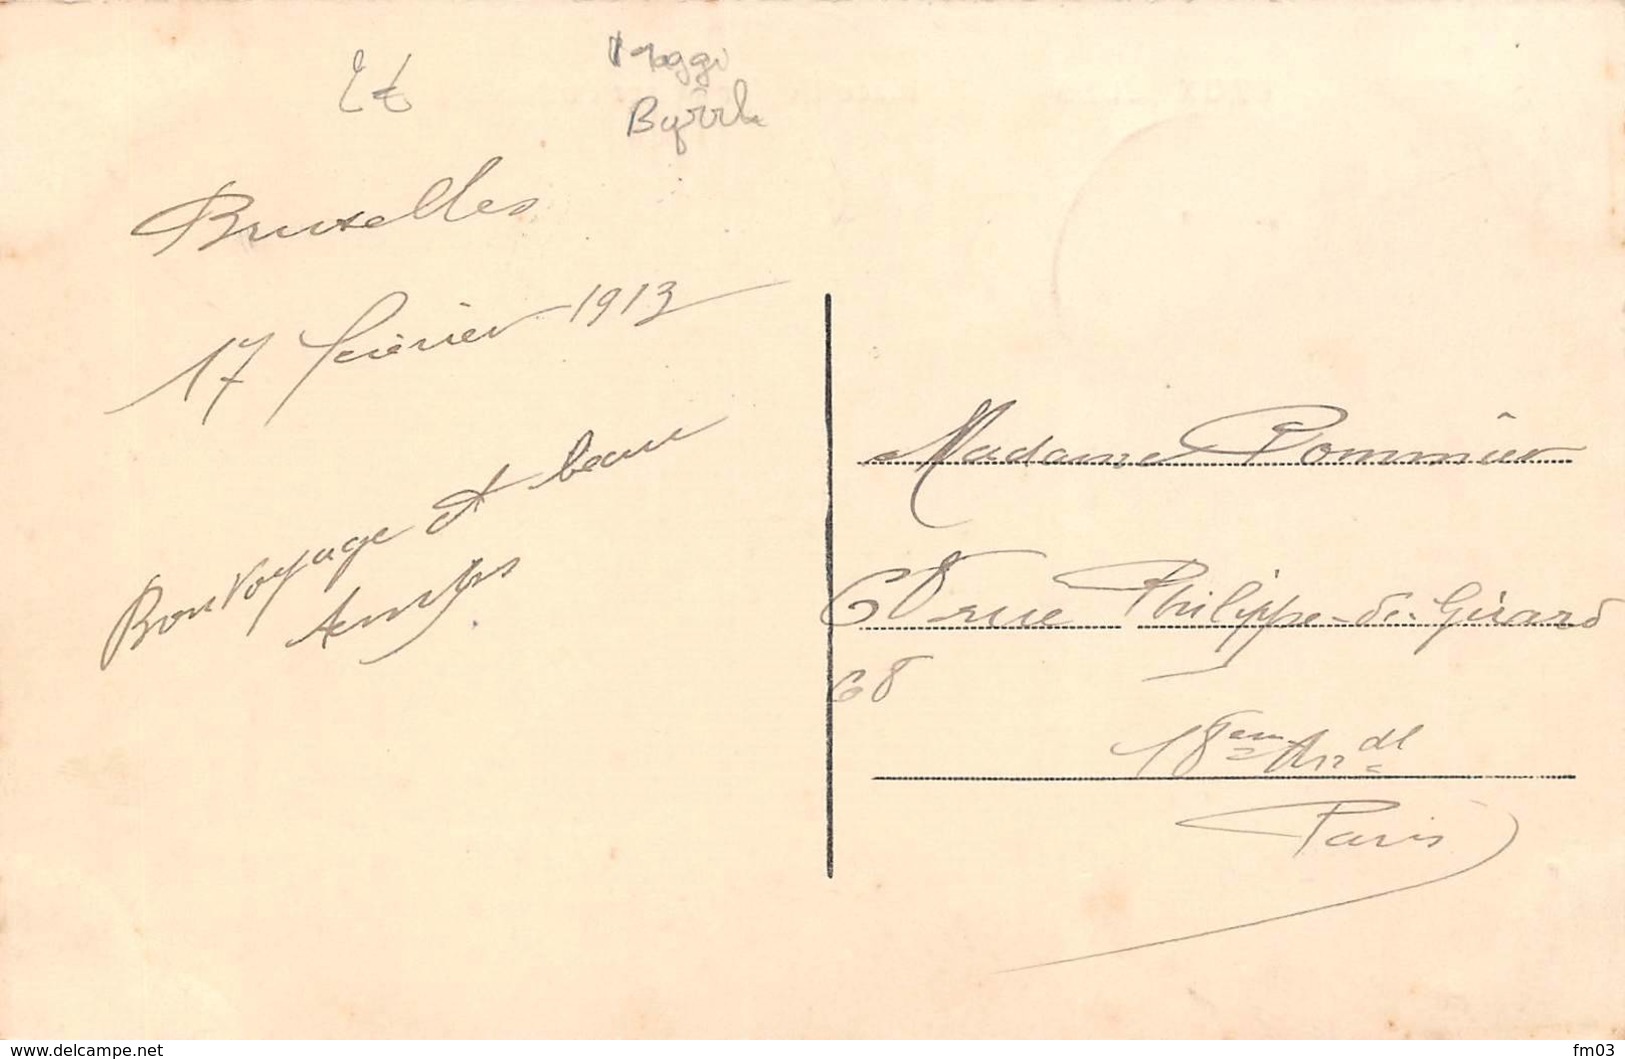 2€
Maggi
Byrrh
Bruxelles
17 février 1913
Bon voyage et beau
temps
Madame Pommier
68 rue Philippe-de-Girard
68
18em Arrdt
Paris
www.delcampe.net
fm03